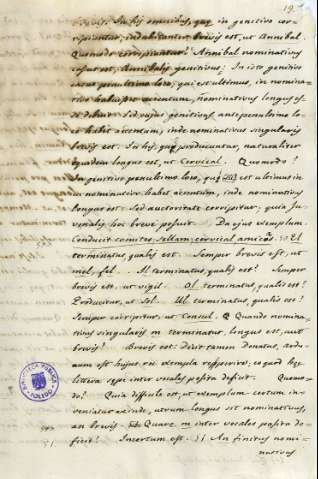 19
brevis. In his omnibus, quae in genitivo cor-
ripiuntur, indubitanter brevis est, ut Annibal.
Quomodo corripiuntur? Annibal nominativus
Annibalis genitivus? In isto genitivo
penultimo loco, qui est ultimus, in nomina-
accentum, nominativus longus es-
se debuit. Sed cujus genitivus antepenultimo lo-
co habet accentum, inde nominativus singularis
brevis est. In his, quae producuntur, naturaliter
quidem longus est, ut Cervical. Quomodo?
In genitivo penultimo loco, qui est ultimus in
nominativo habet accentum, inde nominativus
longus est. Sed auctoritate corripitur, quia Ju-
venalis hoc breve posuit. Da ejus exemplum.
Conducit comites, sellam, cervical amicos. El
terminatus, qualis est? Semper brevis est, ut
mel, fel. Il terminatus, qualis est? Semper
brevis est, ut vigil. Ol terminatus, qualis est?
Producitur, ut Sol. Ul terminatus, qualis est?
Semper corripitur, ut Consul. Quando nomina-
tivus singularis m terminatur, longus est, aut
brevis? Brevis est: dicit tamen Donatus, ardu-
um est hujus rei exempla reperire; eo quod
littera inter vocales posita deficit. Quomo-
do? Quia difficile est, ut exemplum certum in-
veniatur exinde, utrum longus sit nominativus,
an brevis. Quare m inter vocales posita de-
ficit? Incertum est. An finitus nomi-
nativus
BIBLIOTECA PUBLICA
TOLEDO